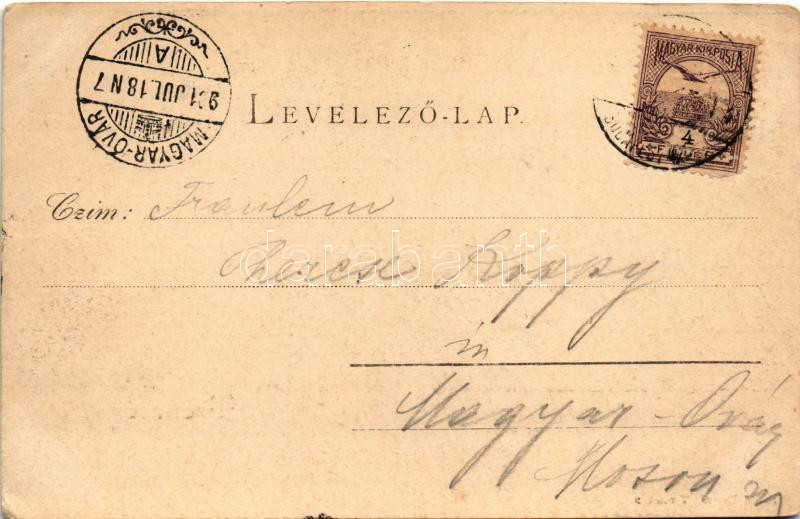 MAGYAR-ÓVÁR
901 JUL. 18 N 7
A
LEVELEZŐ-LAP.
MAGYAR KIR. POSTA
4
Czim: Fräulein
Koppy
in
Magyar-Ovár
Moson m
darabanth.com